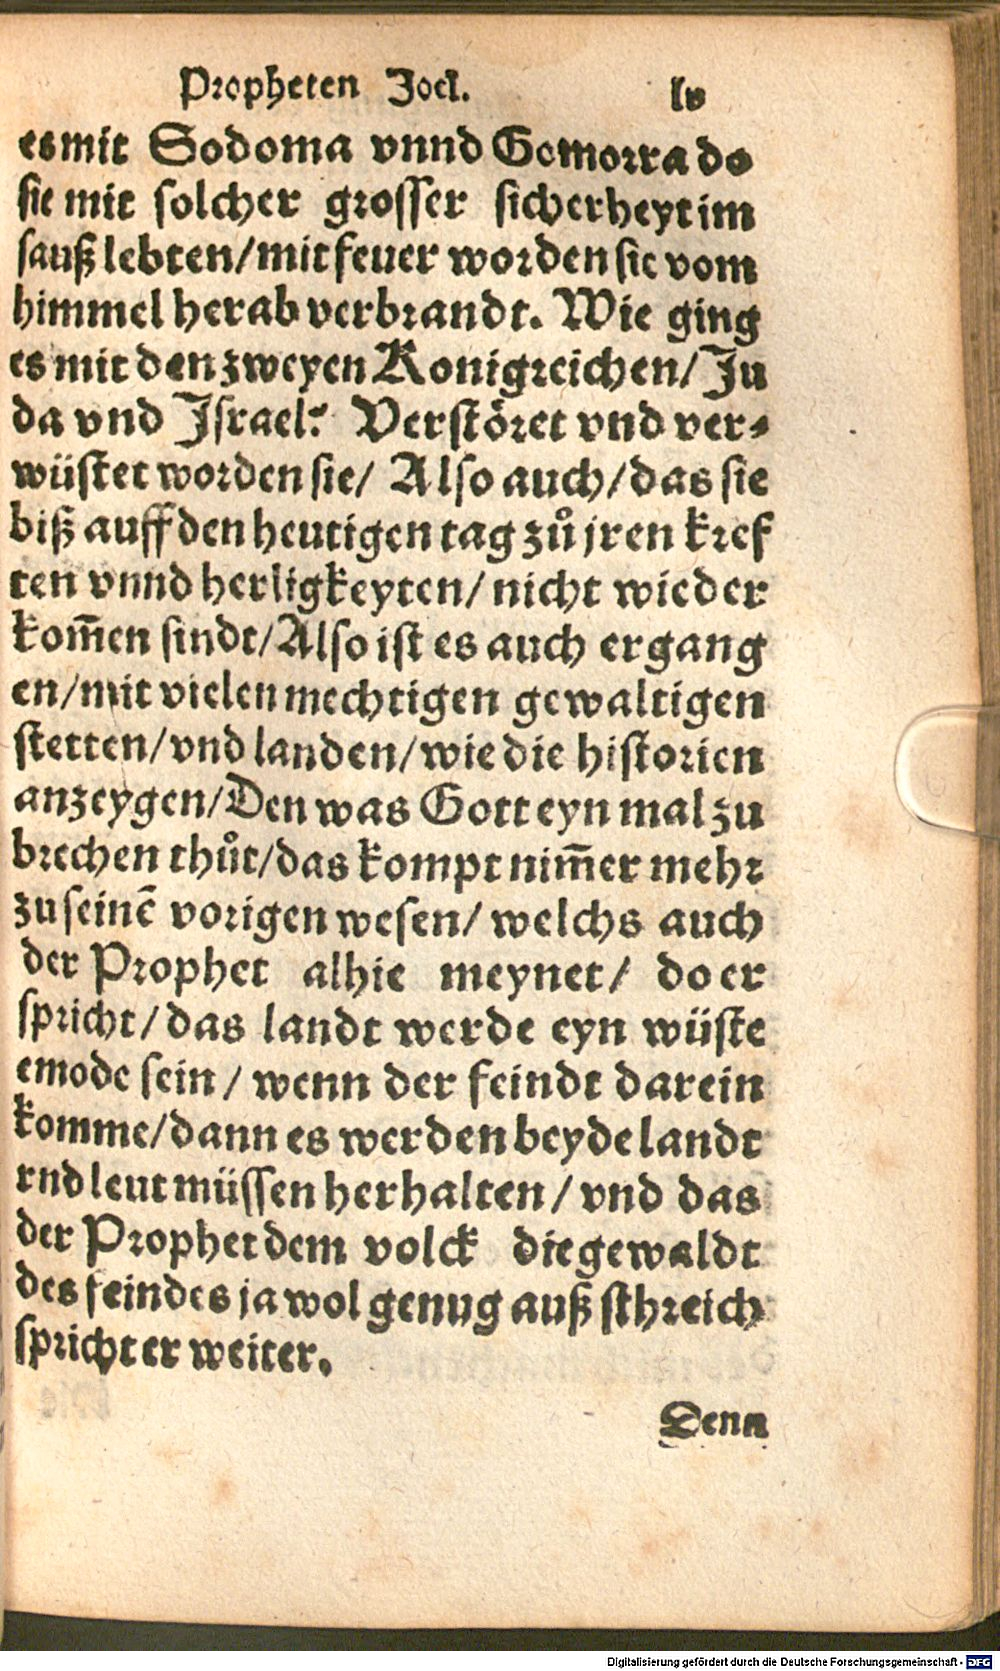 Propheten Joel. lv
es mit Sodoma vnnd Gomorra do
sie mit solcher grosser sicherheyt im
sauß lebten/mit feuer worden sie vom
himmel herab verbrandt. Wie ging
es mit den zweyen Konigreichen/Ju
da vnd Israel? Verstöret vnd ver⸗
wüstet worden sie/ Also auch/das sie
biß auff den heutigen tag zůjren kref
ten vnnd herligkeyten/nicht wieder
kom̄en sindt/Also ist es auch ergang
en/mit vielen mechtigen gewaltigen
stetten/vnd landen/wie die historien
anzeygen/Den was Gott eyn mal zu
brechen thůt/das kompt nim̄er mehr
zu seinē vorigen wesen/ welchs auch
der Prophet alhie meynet/ do er
spricht/das landt werde eyn wüste
emode sein/ wenn der feindt darein
komme/dann es werden beyde landt
rnd leut müssen herhalten/vnd das
der Prophet dem volck die gewaldt
des feindes ja wol genug auß sthreich
spricht er weiter.
Denn
Digitalisierung gefördert durch die Deutsche Forschungsgemeinschaft - DFG